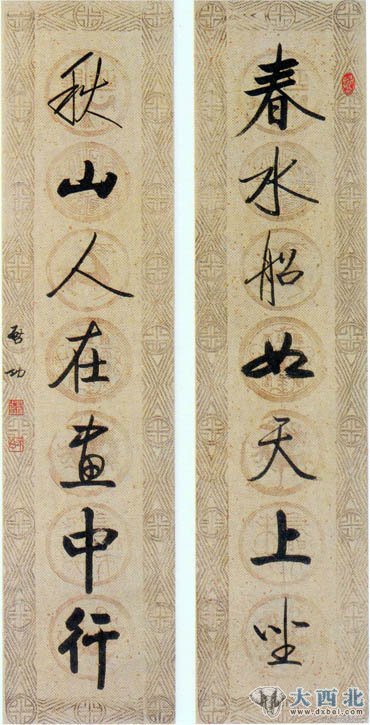 春水船如天上坐
秋山人在画中行
启功
大西北
www.dxbei.com